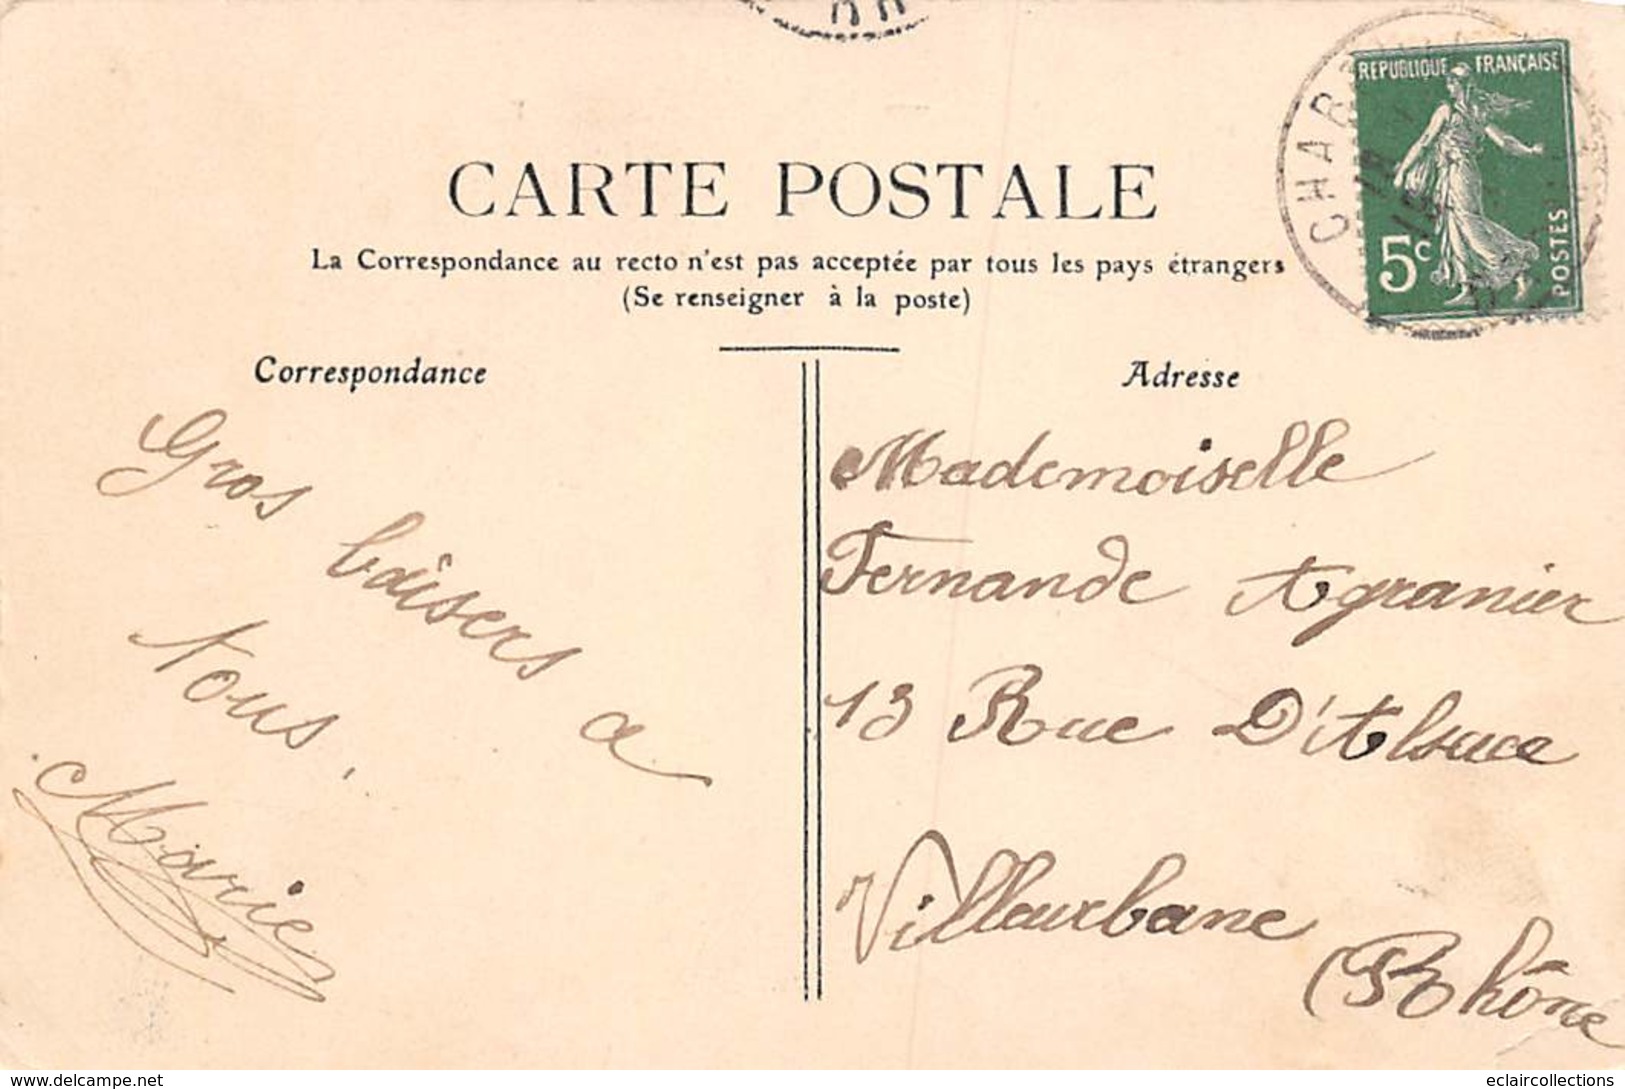 RÉPUBLIQUE FRANÇAISE
5c
POSTES
CARTE POSTALE
La Correspondance au recto n'est pas acceptée par tous les pays étrangers
(Se renseigner à la poste)
Correspondance
Gros baisers a
tous.
Marie
Adresse
Mademoiselle
Fernande Agranier
13 Rue D'Alsace
Villeurbane
(Rhône
www.delcampe.net
eclaircollections